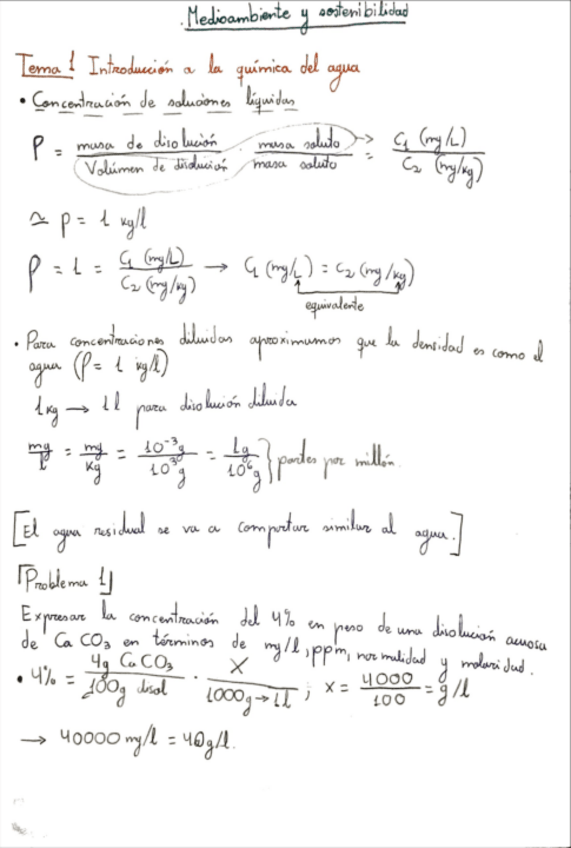 . Medioambiente y sostenibilidad
Tema 1 Introducción a la química del agua
• Concentración de soluciones líquidas
ρ = masa de disolución / Volúmen de disolución · masa soluto / masa soluto = C₁ (mg/L) / C₂ (mg/kg)
≃ ρ = 1 kg/l
ρ = 1 = C₁ (mg/L) / C₂ (mg/kg) → C₁ (mg/L) = C₂ (mg/kg)
equivalente
• Para concentraciones diluidas aproximamos que la densidad es como el
agua (ρ = 1 kg/l)
1kg → 1l para disolución diluida
mg/l = mg/kg = 10⁻³g / 10³g = 1g / 10⁶g } partes por millón.
[El agua residual se va a comportar similar al agua.]
Problema 1
Expresar la concentración del 4% en peso de una disolución acuosa
de CaCO₃ en términos de mg/l, ppm, normalidad y molaridad.
• 4% = 4g CaCO₃ / 100g disol · X / 1000g → 1l ; x = 4000 / 100 = g/l
→ 40000 mg/l = 40g/l.